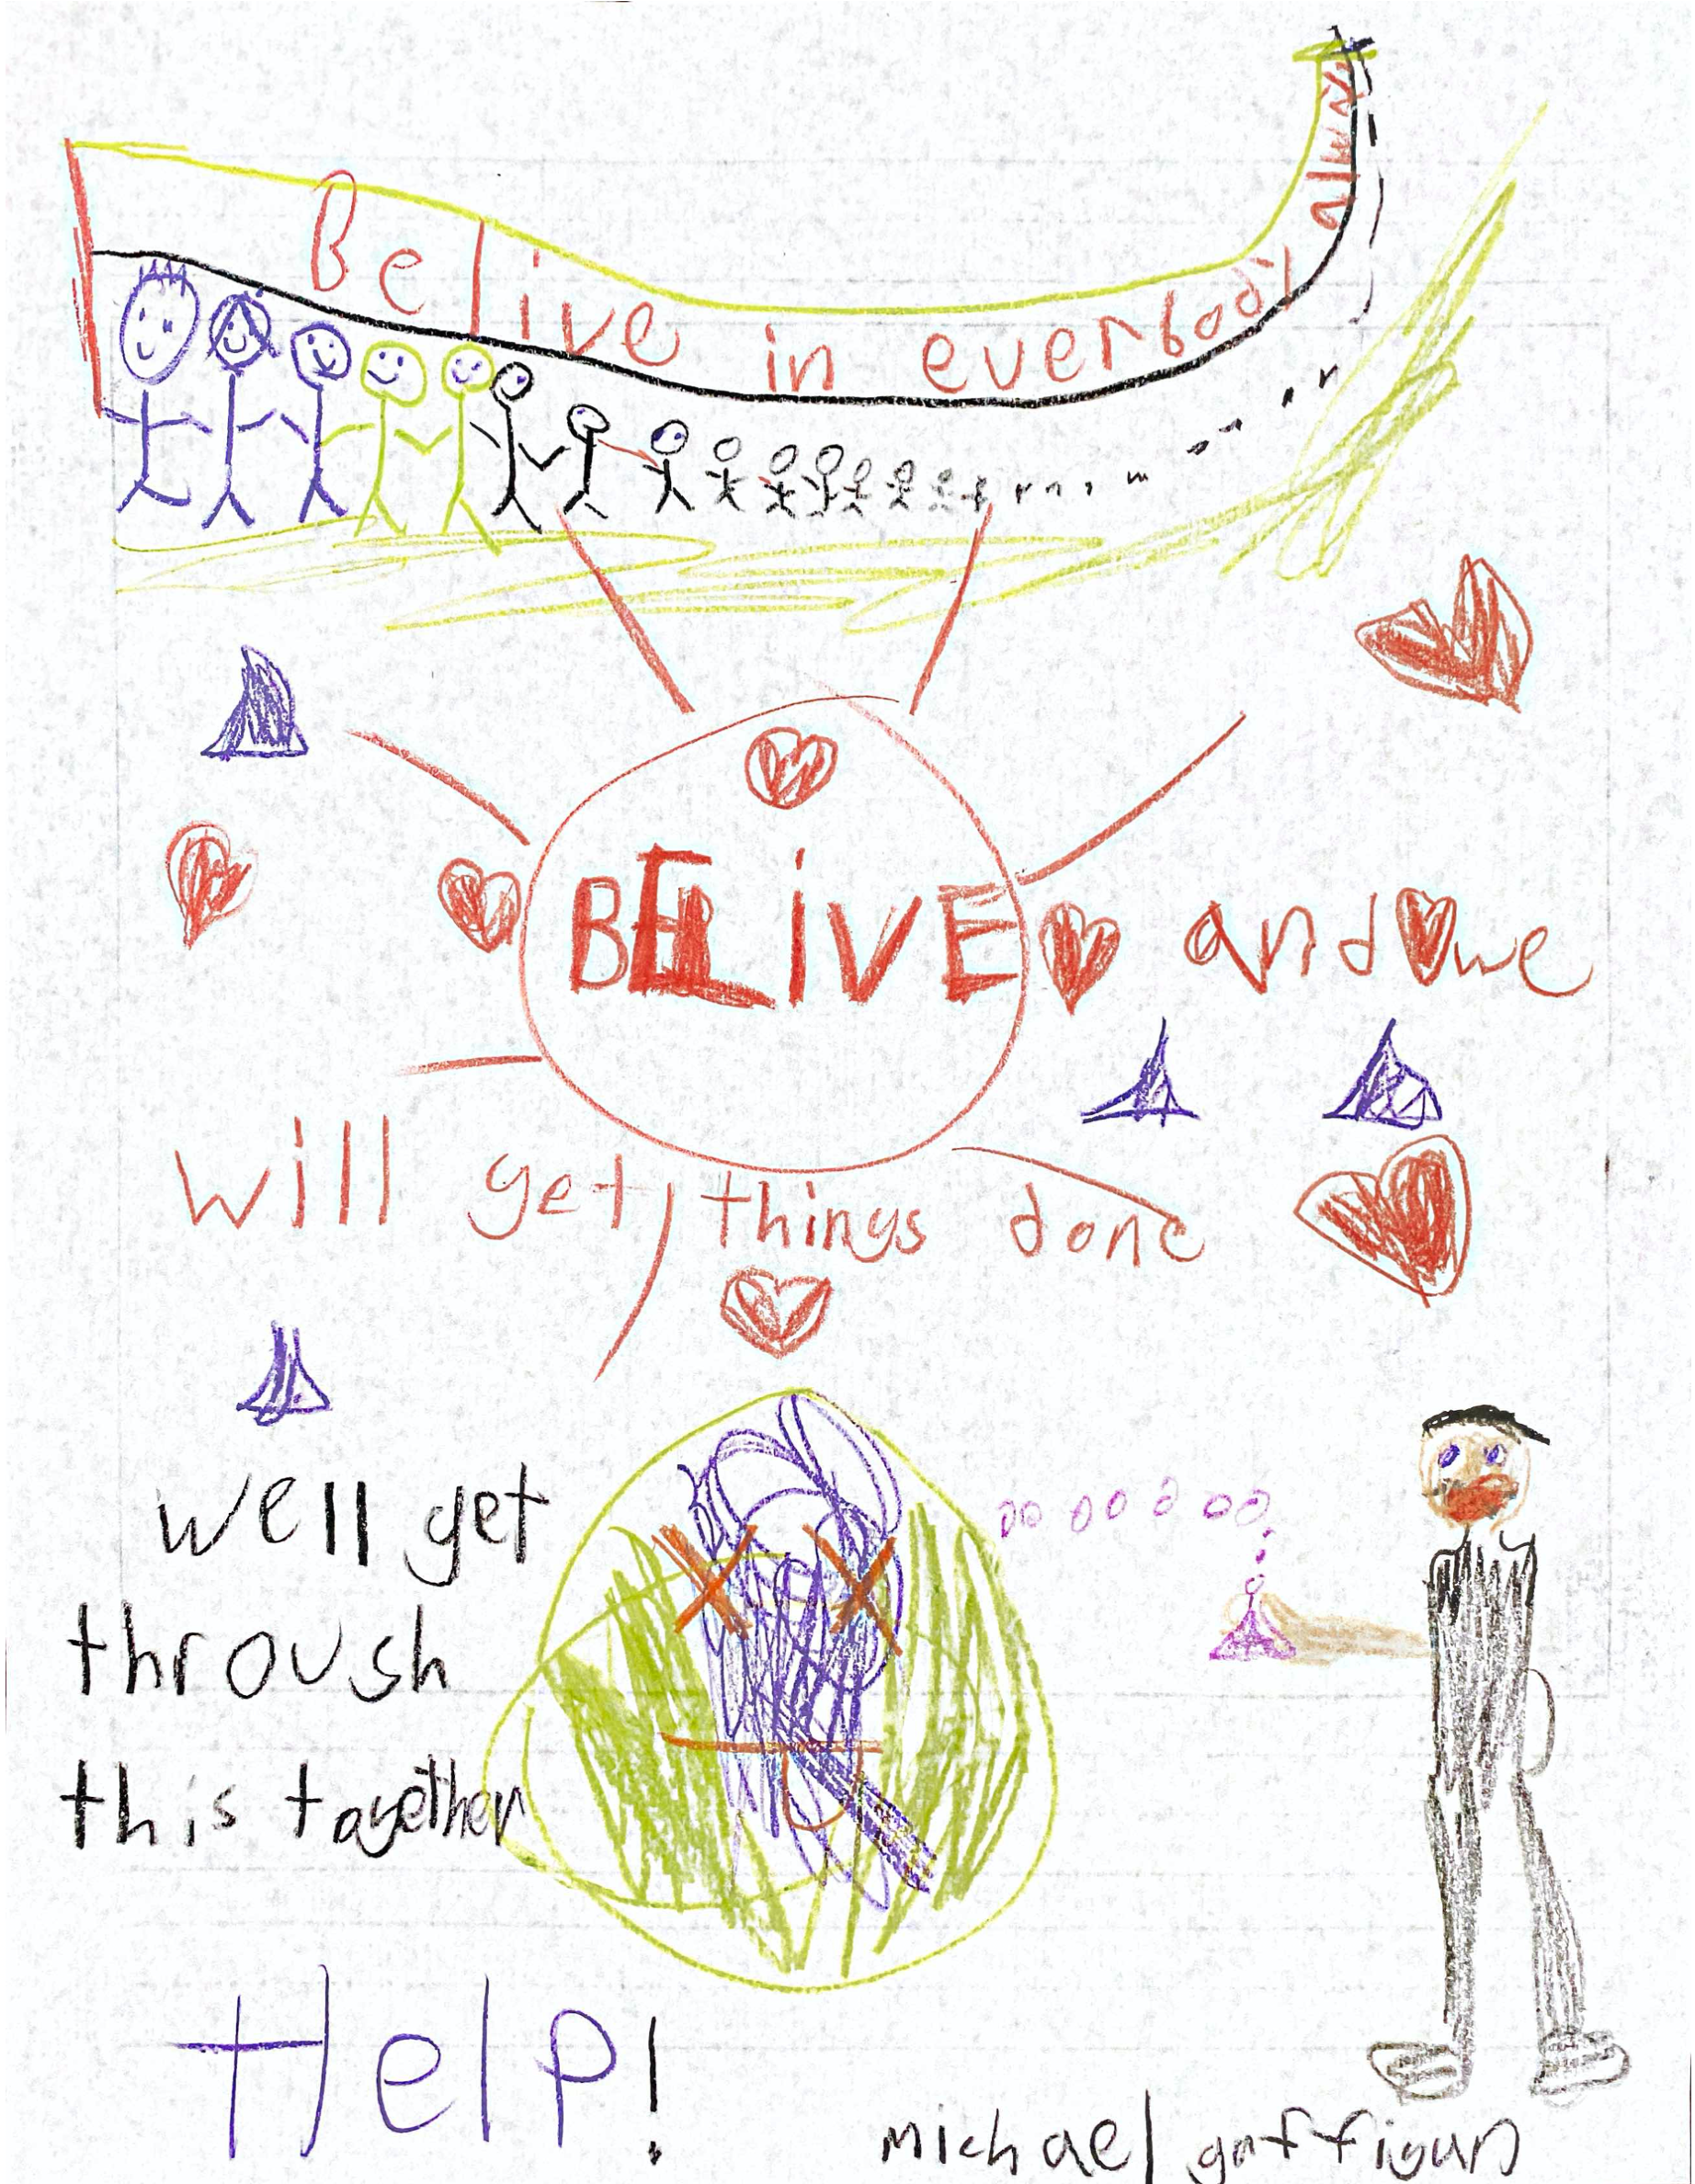 Belive in everbody
BELIVE and we
will get things done
we'll get
throush
this together
Help!
michael gaffigan